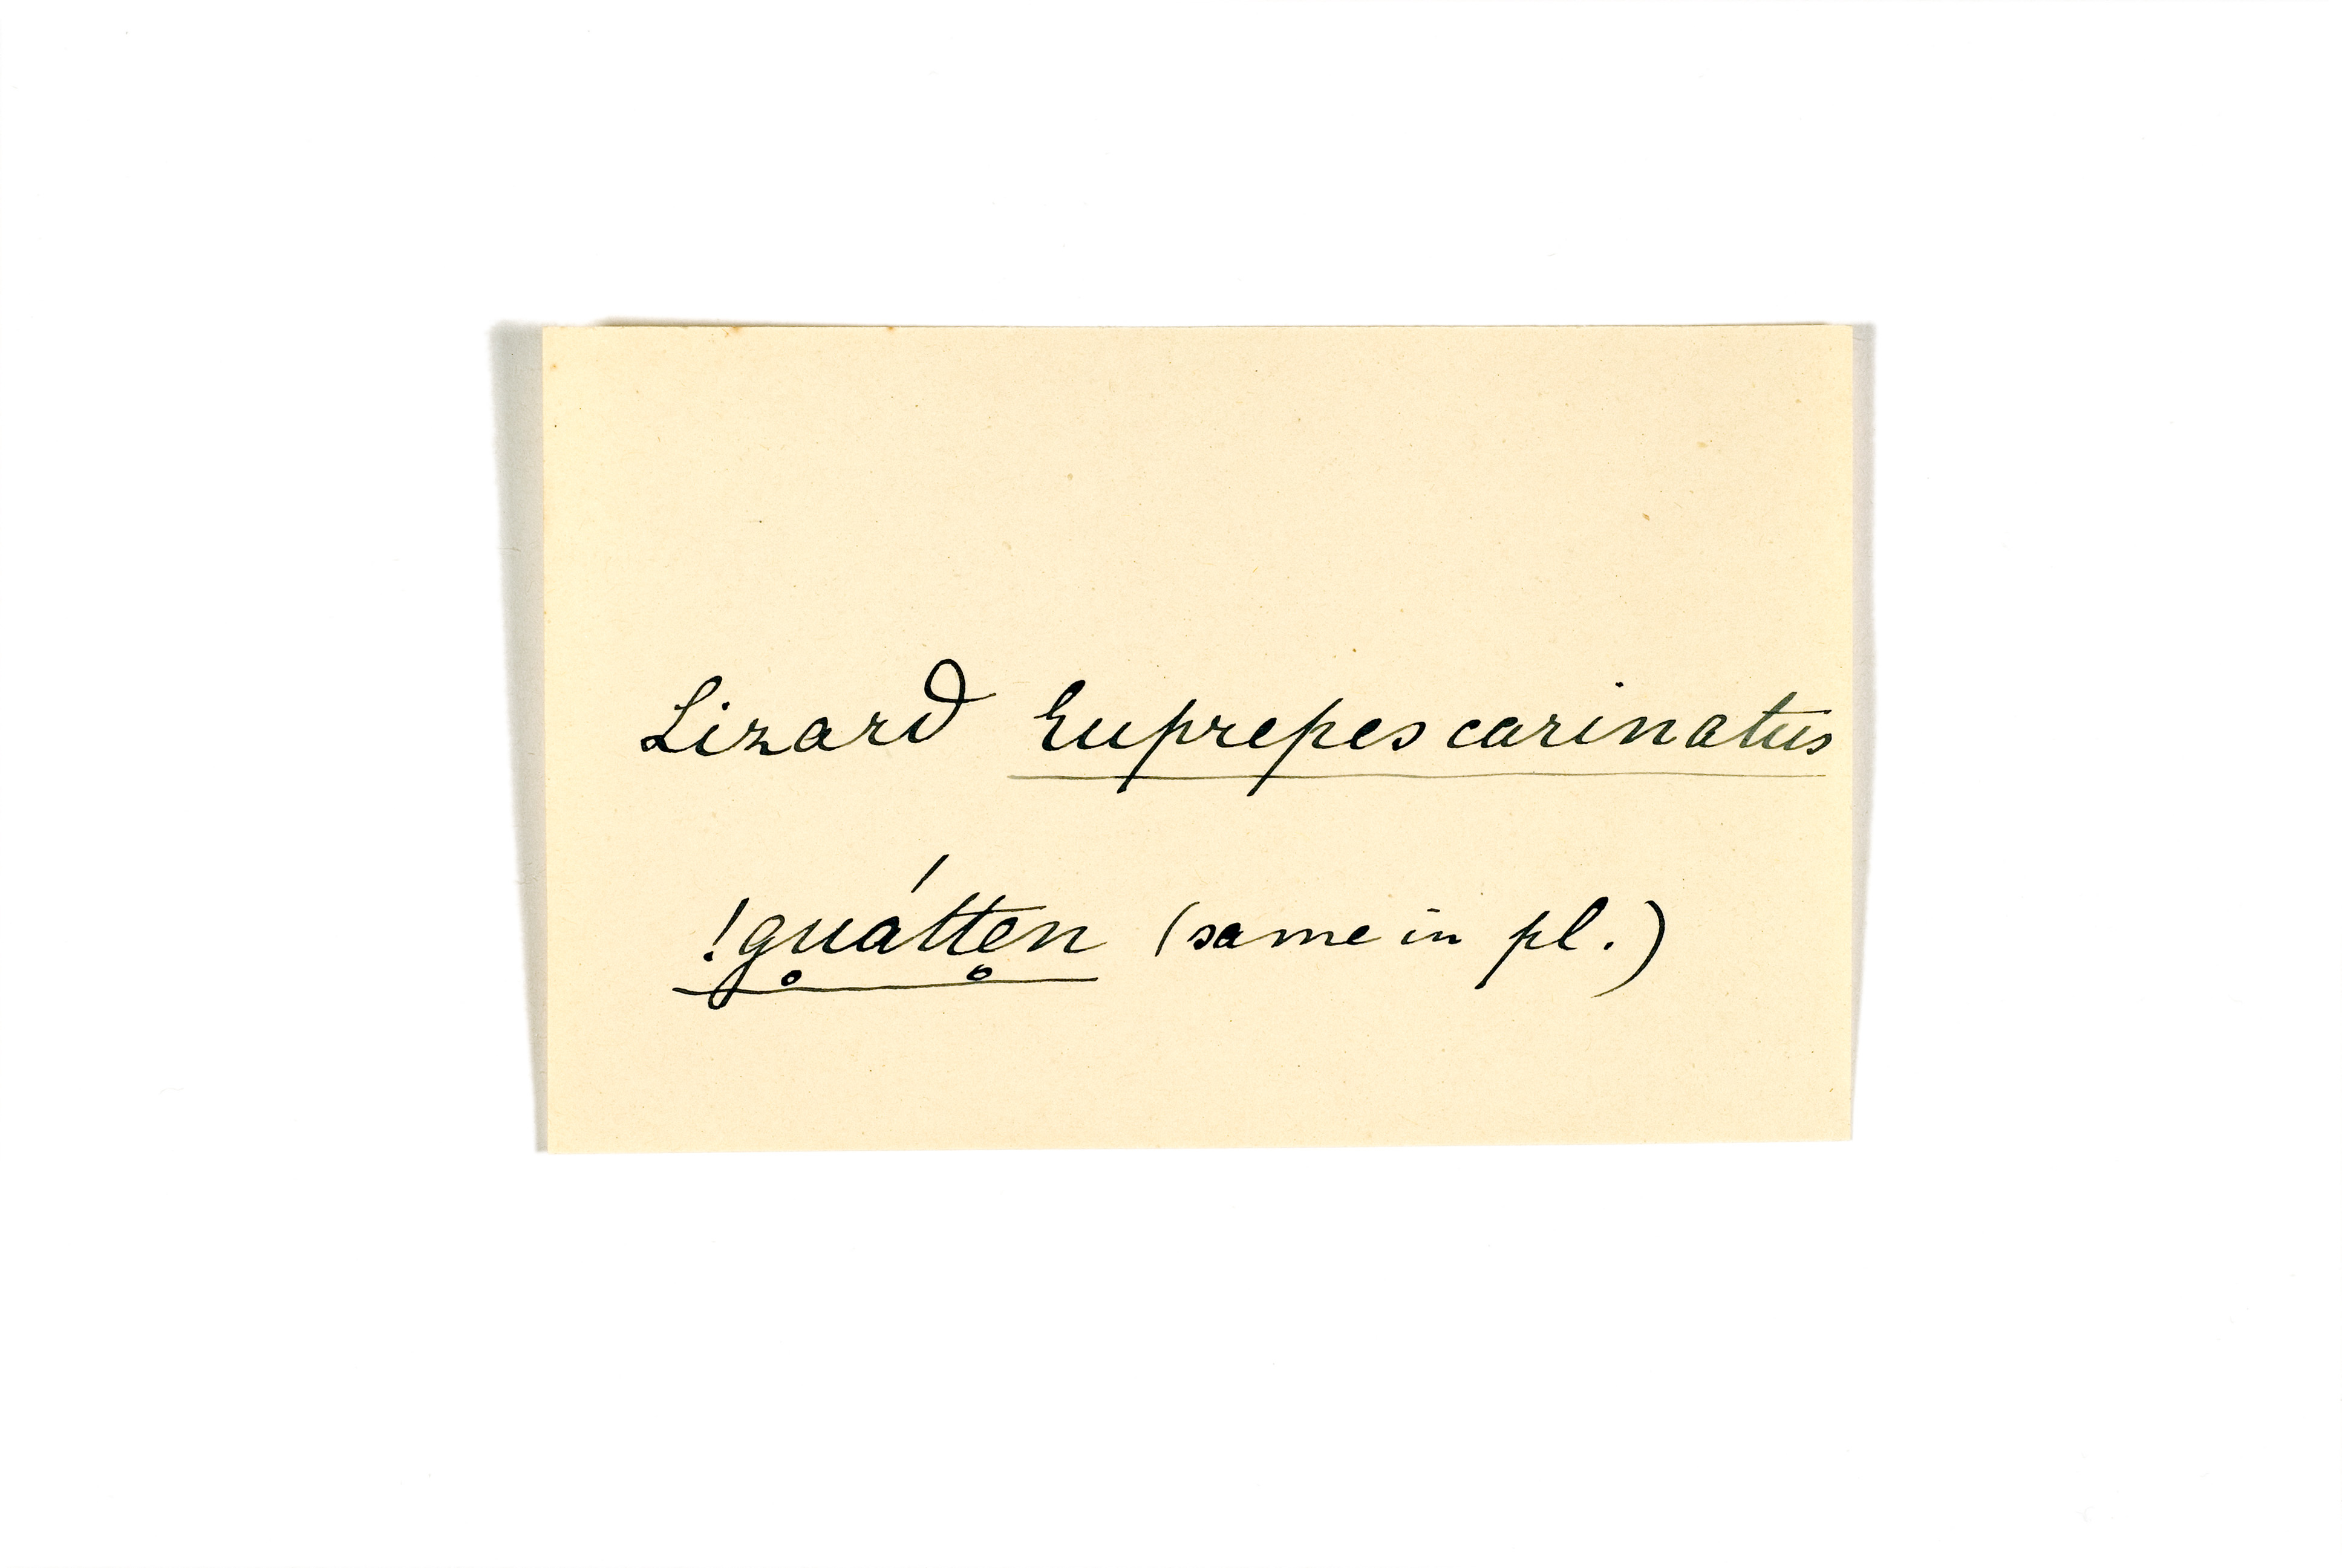 Lizard Euprepes carinatus
!gu̥átte̥n (same in pl.)